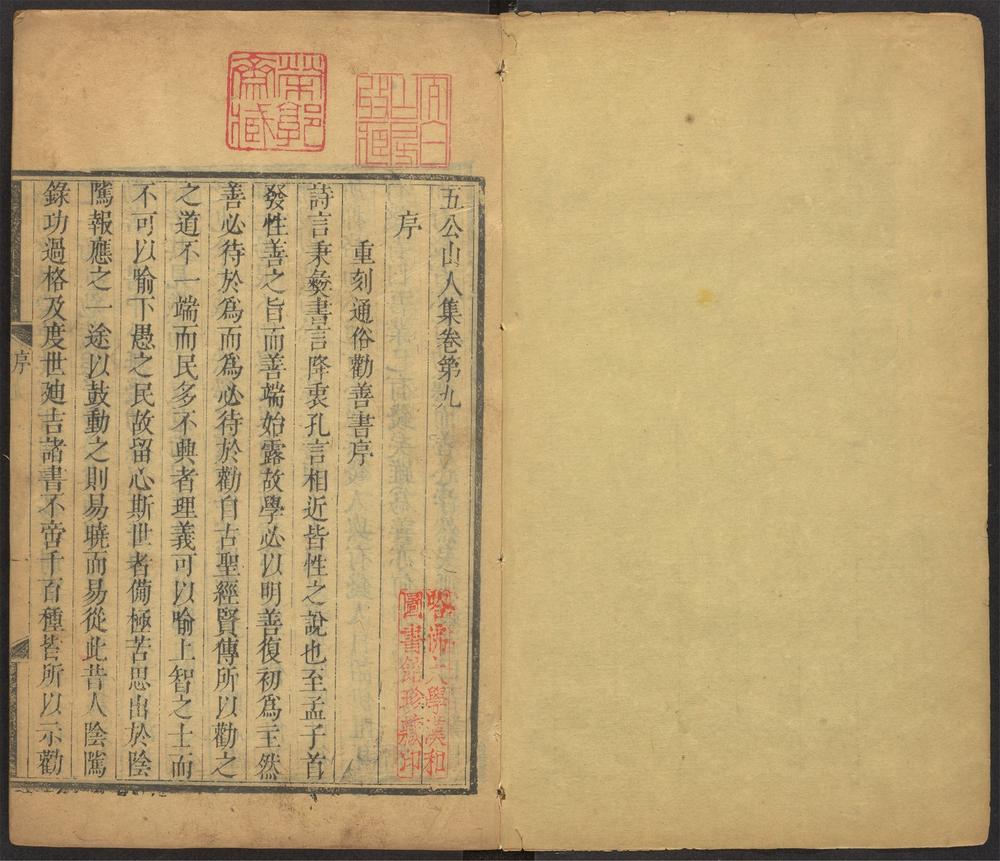 五公山人集卷第九
序
重刻通俗勸善書序
詩言秉彜書言降衷孔言相近皆性之說也至孟子首
發性善之旨而善端始露故學必以明善復初爲主然
善必待於爲而爲必待於勸自古聖經賢傳所以勸之
之道不一端而民多不興者理義可以喻上智之士而
不可以喻下愚之民故留心斯世者備極苦思出於陰
隲報應之一途以鼓動之則易曉而易從此昔人陰隲
錄功過格及度世廸吉諸書不啻千百種皆所以示勸
序
哈佛大學漢和
圖書館珍藏印